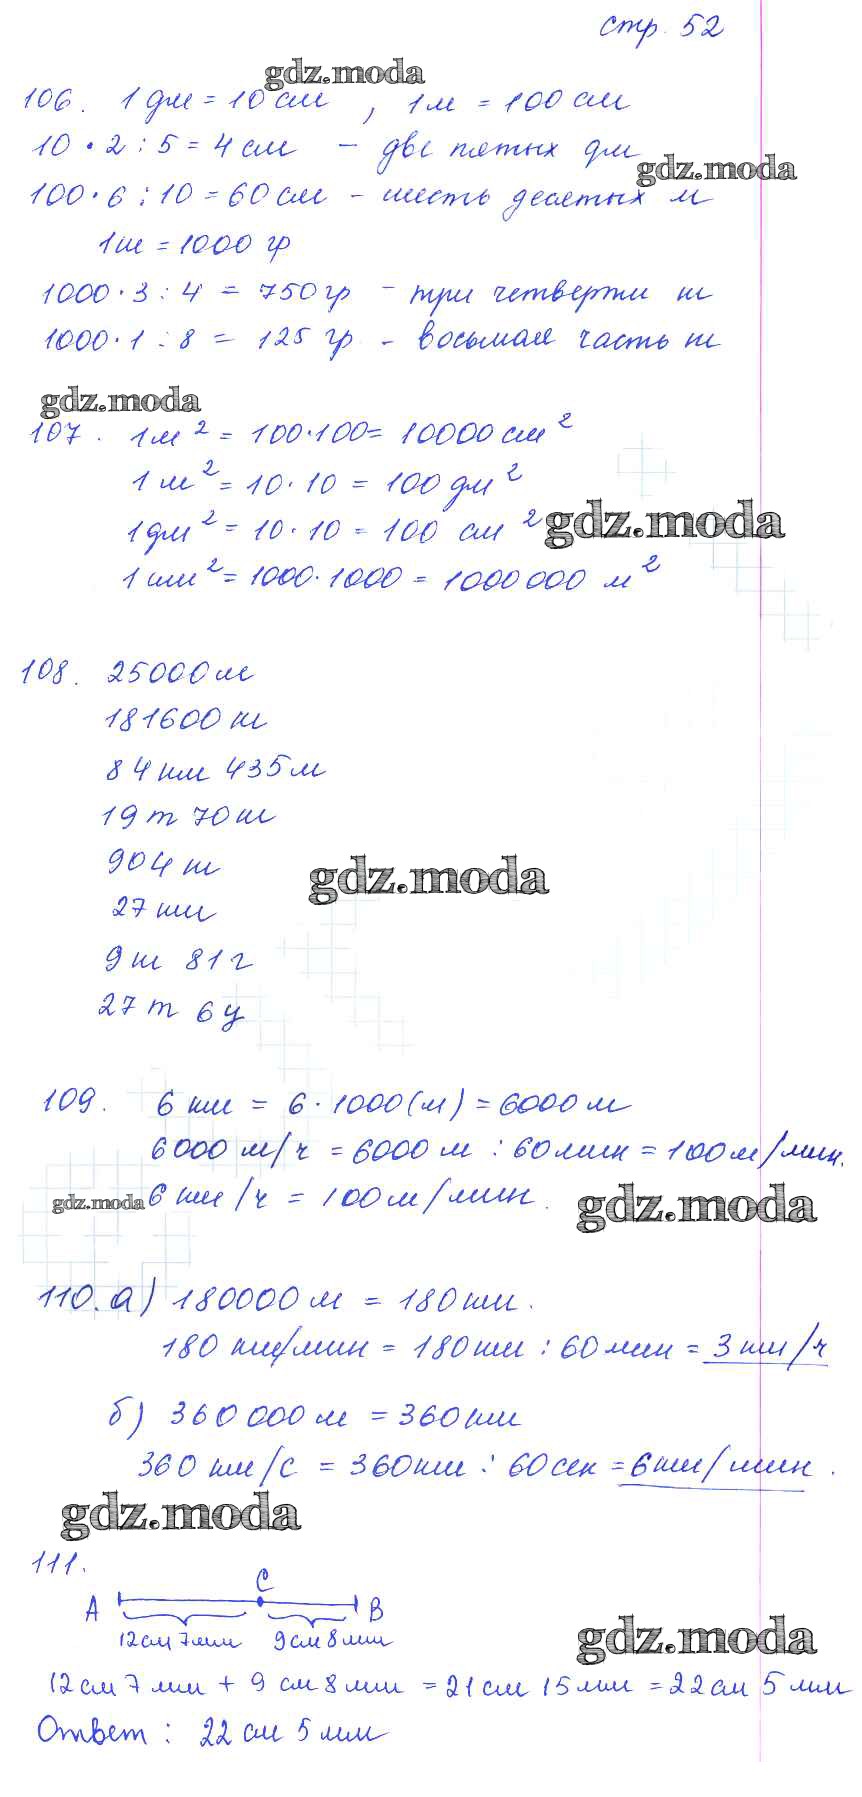 стр. 52
gdz.moda
106. 1 дм = 10 см , 1 м = 100 см
10 · 2 : 5 = 4 см – две пятых дм
gdz.moda
100 · 6 : 10 = 60 см – шесть десятых м
1 кг = 1000 гр
1000 · 3 : 4 = 750 гр – три четверти кг
1000 · 1 : 8 = 125 гр – восьмая часть кг
gdz.moda
107. 1 м² = 100·100 = 10000 см²
1 м² = 10 · 10 = 100 дм²
1 дм² = 10 · 10 = 100 см²
gdz.moda
1 км² = 1000 · 1000 = 1000 000 м²
108. 25000 м
181600 кг
84 км 435 м
19 т 70 кг
904 кг
gdz.moda
27 км
9 кг 81 г
27 т 6 ц
109. 6 км = 6 · 1000 (м) = 6000 м
6000 м/ч = 6000 м : 60 мин = 100 м/мин.
gdz.moda
6 км/ч = 100 м/мин.
gdz.moda
110. а) 180000 м = 180 км.
180 км/мин = 180 км : 60 мин = 3 км/ч
б) 360 000 м = 360 км
360 км/с = 360 км : 60 сек = 6 км/мин.
gdz.moda
111.
C
A B
12 см 7 мм 9 см 8 мм
gdz.moda
12 см 7 мм + 9 см 8 мм = 21 см 15 мм = 22 см 5 мм
Ответ : 22 см 5 мм